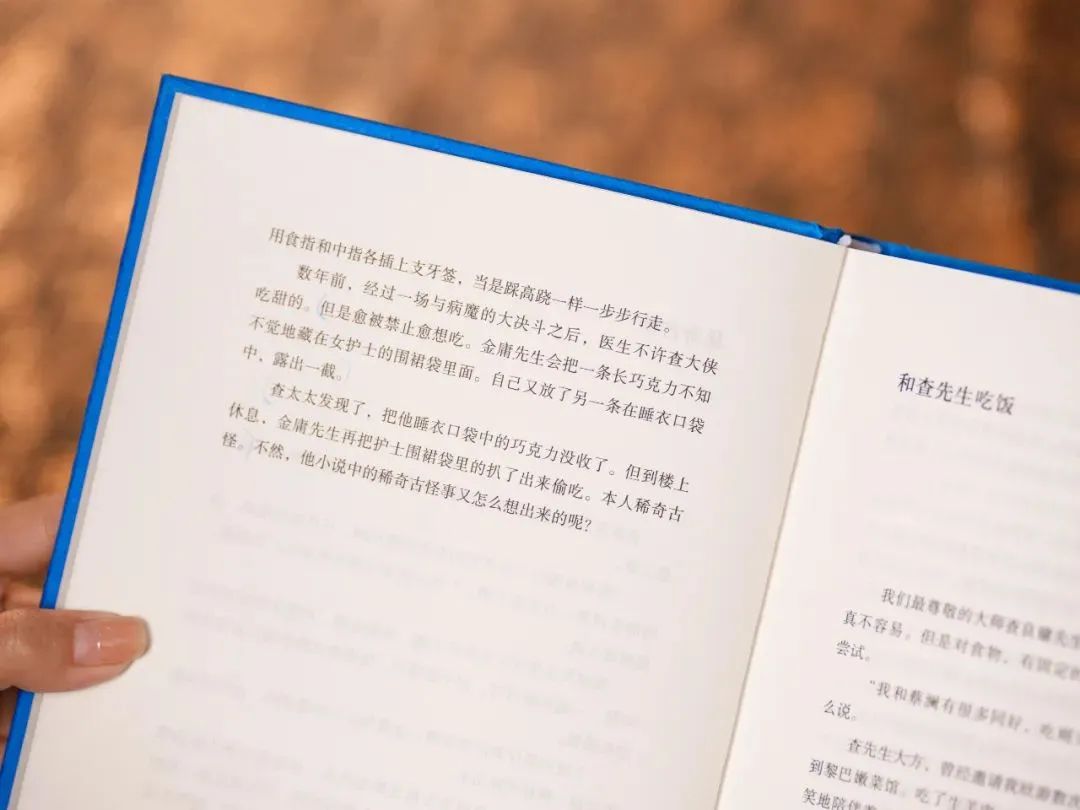 用食指和中指各插上支牙签，当是踩高跷一样一步步行走。
数年前，经过一场与病魔的大决斗之后，医生不许查大侠
吃甜的。但是愈被禁止愈想吃。金庸先生会把一条长巧克力不知
不觉地藏在女护士的围裙袋里面。自己又放了另一条在睡衣口袋
中，露出一截。
查太太发现了，把他睡衣口袋中的巧克力没收了。但到楼上
休息，金庸先生再把护士围裙袋里的扒了出来偷吃。本人稀奇古
怪。不然，他小说中的稀奇古怪事又怎么想出来的呢？
和查先生吃饭
我们最尊敬的大师查良镛先生
真不容易。但是对食物，有固定的
尝试。
“我和蔡澜有很多同好，吃
么说。
查先生大方，曾经邀请我
到黎巴嫩菜馆。吃了生
笑地陪伴